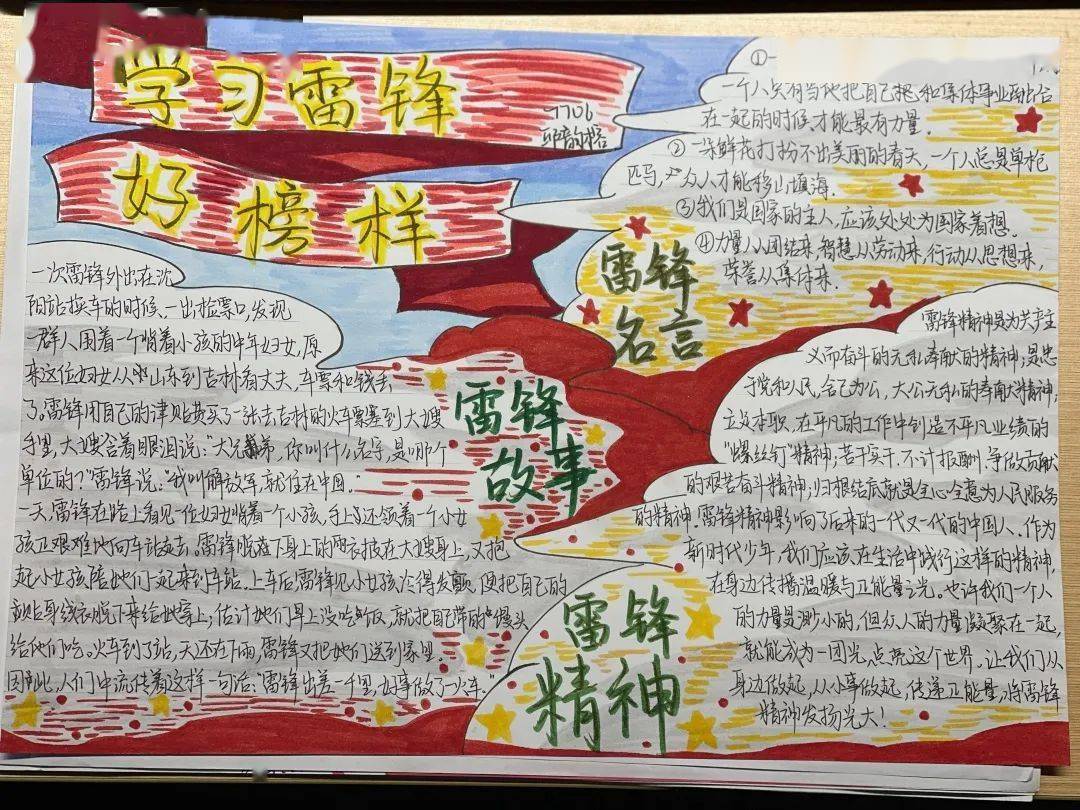 学习雷锋
好榜样
7706
①
一个人只有当他把自己把和集体事业融合
在一起的时候,才能最有力量.
② 一朵鲜花打扮不出美丽的春天,一个人总是单枪
匹马,众人才能移山填海.
③我们是国家的主人,应该处处为国家着想.
④力量从团结来,智慧从劳动来,行动从思想来,
荣誉从集体来.
雷锋
名言
一次雷锋外出在沈
阳站换车的时候,一出检票口,发现
一群人围着一个背着小孩的中年妇女,原
来这位妇女从山东到吉林看丈夫,车票和钱丢
了,雷锋用自己的津贴费买了一张去吉林的火车票塞到大嫂
手里,大嫂含着眼泪说:“大兄弟,你叫什么名字,是哪个
单位的?”雷锋说:“我叫解放军,就住在中国.”
一天,雷锋在路上看见一位妇女背着一个小孩,手上还领着一个小女
孩正艰难地向车站走去.雷锋脱落下身上的雨衣披在大嫂身上,又抱
起小女孩陪她们一起来到车站.上车后,雷锋见小女孩冷得发颤,便把自己的
贴身线衣脱下来给她穿上,估计她们早上没吃饭,就把自己带的馒头
给他们吃。火车到了站,天还在下雨,雷锋又把她们送到家里.
因此,人们中流传着这样一句话:“雷锋出差一千里,好事做了一火车.”
雷锋
故事
雷锋精神是为共产主
义而奋斗的无私奉献的精神,是忠
于党和人民,舍己为公,大公无私的奉献精神,
立足本职,在平凡的工作中创造不平凡业绩的
“螺丝钉”精神,苦干实干,不计报酬,争做贡献
的艰苦奋斗精神,归根结底就是全心全意为人民服务
的精神.雷锋精神影响了后来的一代又一代的中国人、作为
新时代少年,我们应该在生活中践行这样的精神,
在身边传播温暖与正能量之光,也许我们一个人
的力量是渺小的,但众人的力量凝聚在一起,
就能成为一团光,点亮这个世界.让我们从
身边做起,从小事做起,传递正能量,将雷锋
精神发扬光大!
雷锋
精神